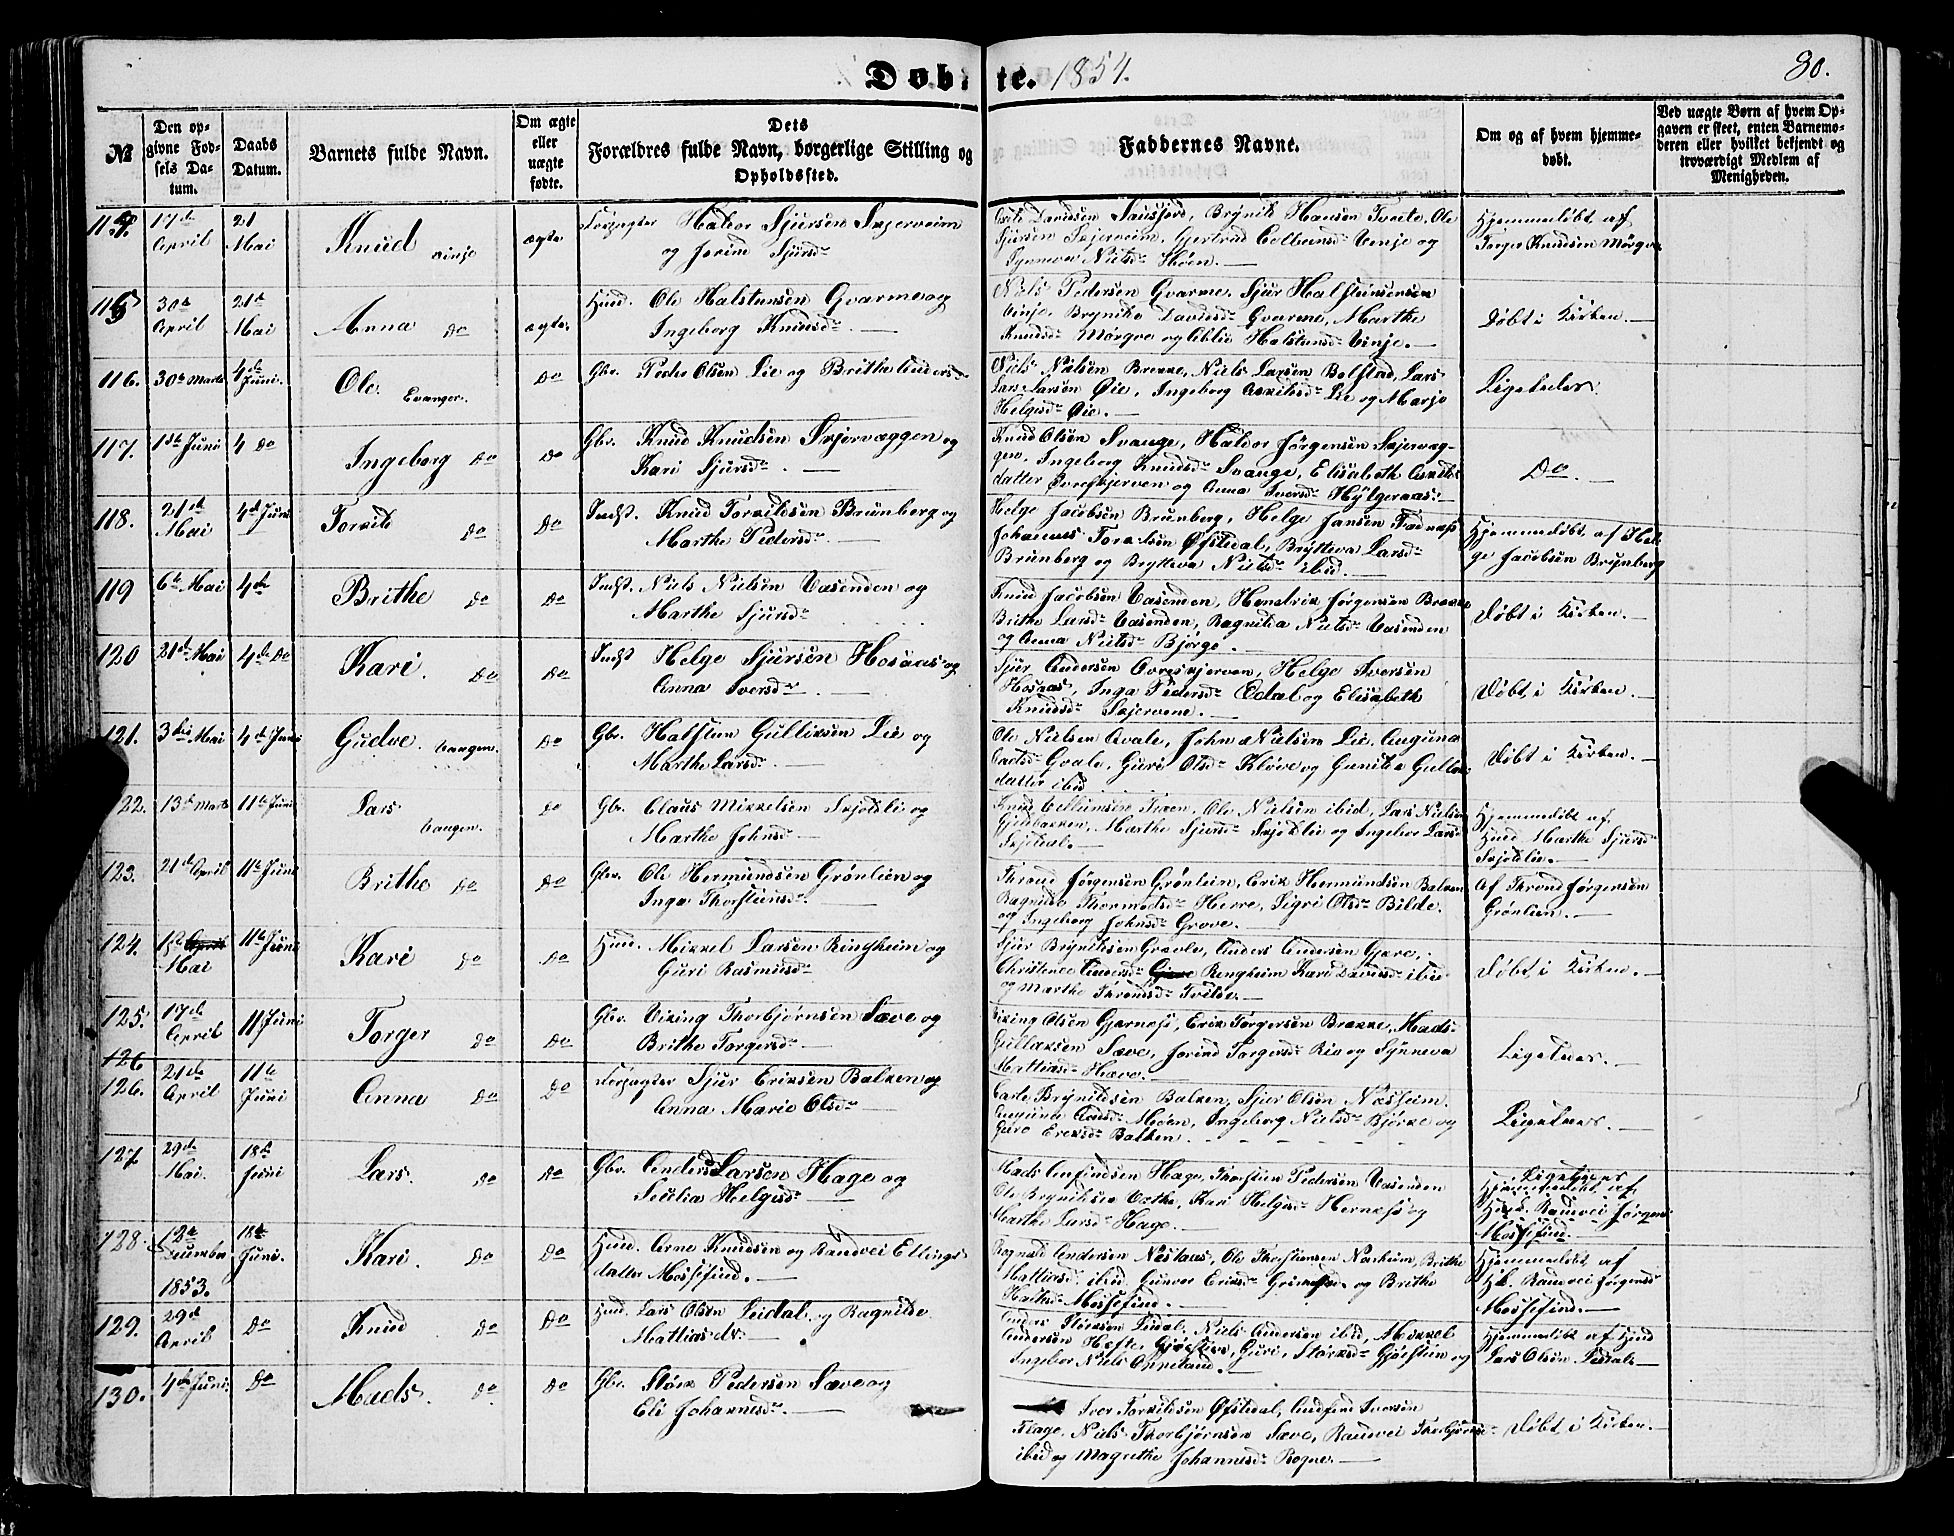 Døbte. 1854.
80.
№
Den opgivne Fødsels Datum.
Daabs Datum.
Barnets fulde Navn.
Om ægte eller uægte fødte.
Dets Forældres fulde Navn, borgerlige Stilling og Opholdssted.
Faddernes Navne.
Om og af hvem hjemmedøbt.
Ved uægte Børn af hvem Opgaven er skeet, enten Barnemoderen eller hvilket bekjendt og troværdigt Medlem af Menigheden.
114. 17de April 21 Mai Knud Vinje ægte Forpagter Haldor Sjursen Skjerveim
og Jorind Sjursdr
Davidsen Sausjord, Brynild Hansen Tveite, Ole
Sjursen Skjerveim, Gjertrud Vinje og
Synneva Nielsdr
Hjemmedøbt af
Torger Knudsen Mørqve
115 30te April 21de Mai Anna Do ægte Huusm. Ole Halstensen Gvarme og
Ingeborg Knudsdr
Niels Pedersen Gvarme, Sjur Halstensen
Vinje, Brynild Davidsdr Gvarme, Marthe
Knudsdr Mørqve og Halstensdr Vinje.
Døbt i Kirken.
116. 30te Marts 4de Juni. Ole Evanger. Do Gbr. Peder Olsen Lie og Brithe Andersdr
Niels Nielsen Brekke, Niels Larsen Bolstad, Lars
Larsen Øie, Ingeborg Lie og Marjo
Helgesdr Øie.
Ligeledes.
117. 1ste Juni 4 Do Ingeborg Do Do Gbr. Knud Knudsen Skjervæggen og
Kari Sjursdr
Knud Olsen Svange, Haldor Jørgensen Skjervæg-
gen, Ingeborg Knudsdr Svange, Elisabeth
datter og Anna Iversdr Hylgeraas.
Do
118. 21de Mai 4de Juni Torkild Do Do Indst. Knud Torkildsen Brunborg og
Marthe Pedersdr
Helge Jacobsen Brunborg, Helge Jansen Fadnæs
Johannes Øfstedal, Bryteva Larsdr
Brunborg og Bryteva Nielsdr ibid.
Hjemmedøbt af Hel-
ge Jacobsen Brunborg
119 6te Mai 4de Brithe Do Do Indst. Niels Nielsen Vasenden og
Marthe Sjursdr
Knud Jacobsen Vasenden, Hendrik Jørgensen
Brithe Larsdr Vasenden, Ragnilda Nielsdr Vasenden
og Anna Nielsdr Bjørge.
Døbt i Kirken.
120 21de Mai 4de Do Kari. Do Do Indst Helge Sjursen Hosaas og
Anna Iversdr
Sjur Andersen Helge Iversen
Hosaas, Inga Pedersdr og Elisabeth
Knudsdr Skjervene.
Døbt i Kirken.
121. 3die Mai 4de Juni Gudve. Vangen. Do Gbr. Halsten Gulliksen Lie og
Marthe Larsdr
Ole Nielsen John Nielsen Lie,
Gvale, Guri Olsdr Kløve og
datter ibid
Døbt i Kirken.
122. 13de Marts 11te Juni Lars Vangen. Do Gbr. Claus Mikkelsen Skjeldelie og
Marthe Johnsdr
Knud Ole Nielsen ibid, Lars Nielsen
Gjeldbakken, Marthe Sjursdr Skjeldelie og Ingebor Larsdr
Hjemmedøbt af
Marthe Sjursdr
Skjeldelie.
123. 21de April 11te Juni Brithe Do Do Gbr. Ole Hermundsen Grønlien og
Inga Thorstensdr
Thrond Jørgensen Grønlein, Erik Hermundsen Balken
Ragnilde Thormodsdr Herre, Sigri Olsdr Bilde.
og Ingeborg Johnsdr Grove.
Af Thrond Jørgensen
Grønlien.
124. Mai 11te Juni Kari Do Do Huusm. Mikkel Larsen Ringheim og
Guri Rasmusdr
Sjur Brynildsen Anders Andersen Gjære,
Christence Andersdr Ringheim Kari Davidsdr ibid
og Marthe Throndsdr Tvilde.
Døbt i Kirken.
125. 17de April 11 Juni Torger Do Do Gbr. Viking Thorbjørnsen Sæve og
Brithe Torgersdr
Viking Olsen Gjernæs, Erik Torgersen Brekke, Mads
Gulleiksen Sæve, Jorind Torgersdr og Synneva
Mattisdr Hæve.
Ligeledes.
126
126. 21de April 11te Juni Anna Do Do Forpagter Sjur Eriksen Balken og
Anna Marie Olsdr
Brynildsen Balken, Sjur Olsen Næsheim,
Ingeborg Nielsdr Bjørke og
Guro Eriksdr Balken.
Ligeledes.
127. 29de Mai. 18de Juni Lars. Do Do Gbr. Anders Larsen Hage og
Sicilia Helgesdr
Mads Hage, Thorsten Pedersen Vasenden
Ole Brynildsen Kari Helgesdr Hernæs og
Marthe Larsdr Hage.
Ligeledes
Hjemmedøbt af
Randvei Jørgens
Mossefind.
128. 12te December 1853. 18de Juni. Kari. Do Do Huusm. Arne Knudsen og Randvei Ellings-
datter Mossefind.
Andersen Ole Thorstensen Norheim, Brithe
Mattisdr ibid, Gunvor Eriksdr og Brithe
Mossefind.
Hjemmedøbt af
Randvei Jørgensdr
Mossefind.
129. 29de April Do Knud Do Do Huusm. Lars Olsen Leidal og Ragnilde
Mattias dr.
Anders Leidal, Niels Andersen ibid, Mikkel
Andersen Hefte, Guri og
Ingebor Niels
Hjemmedøbt af Huusm
Lars Olsen Leidal
130. 4de Juni Do Mads Do Do Gbr. Størk Pedersen Sæve og
Eli Johannesdr
Iver Torkildsen Øfstedal, Iversen
Hage, Niels Thorbjørnsen Sæve, Randvei Thorbjørnsdr
ibid og Magrethe Johannesdr Rogne.
Døbt i Kirken.